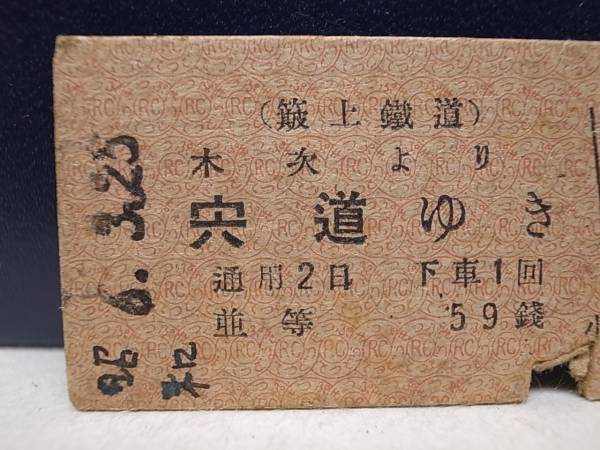 (簸上鐵道)
木次より
宍道ゆき
通用2日 下車1回
並等 59錢
6. 3.25
昭和